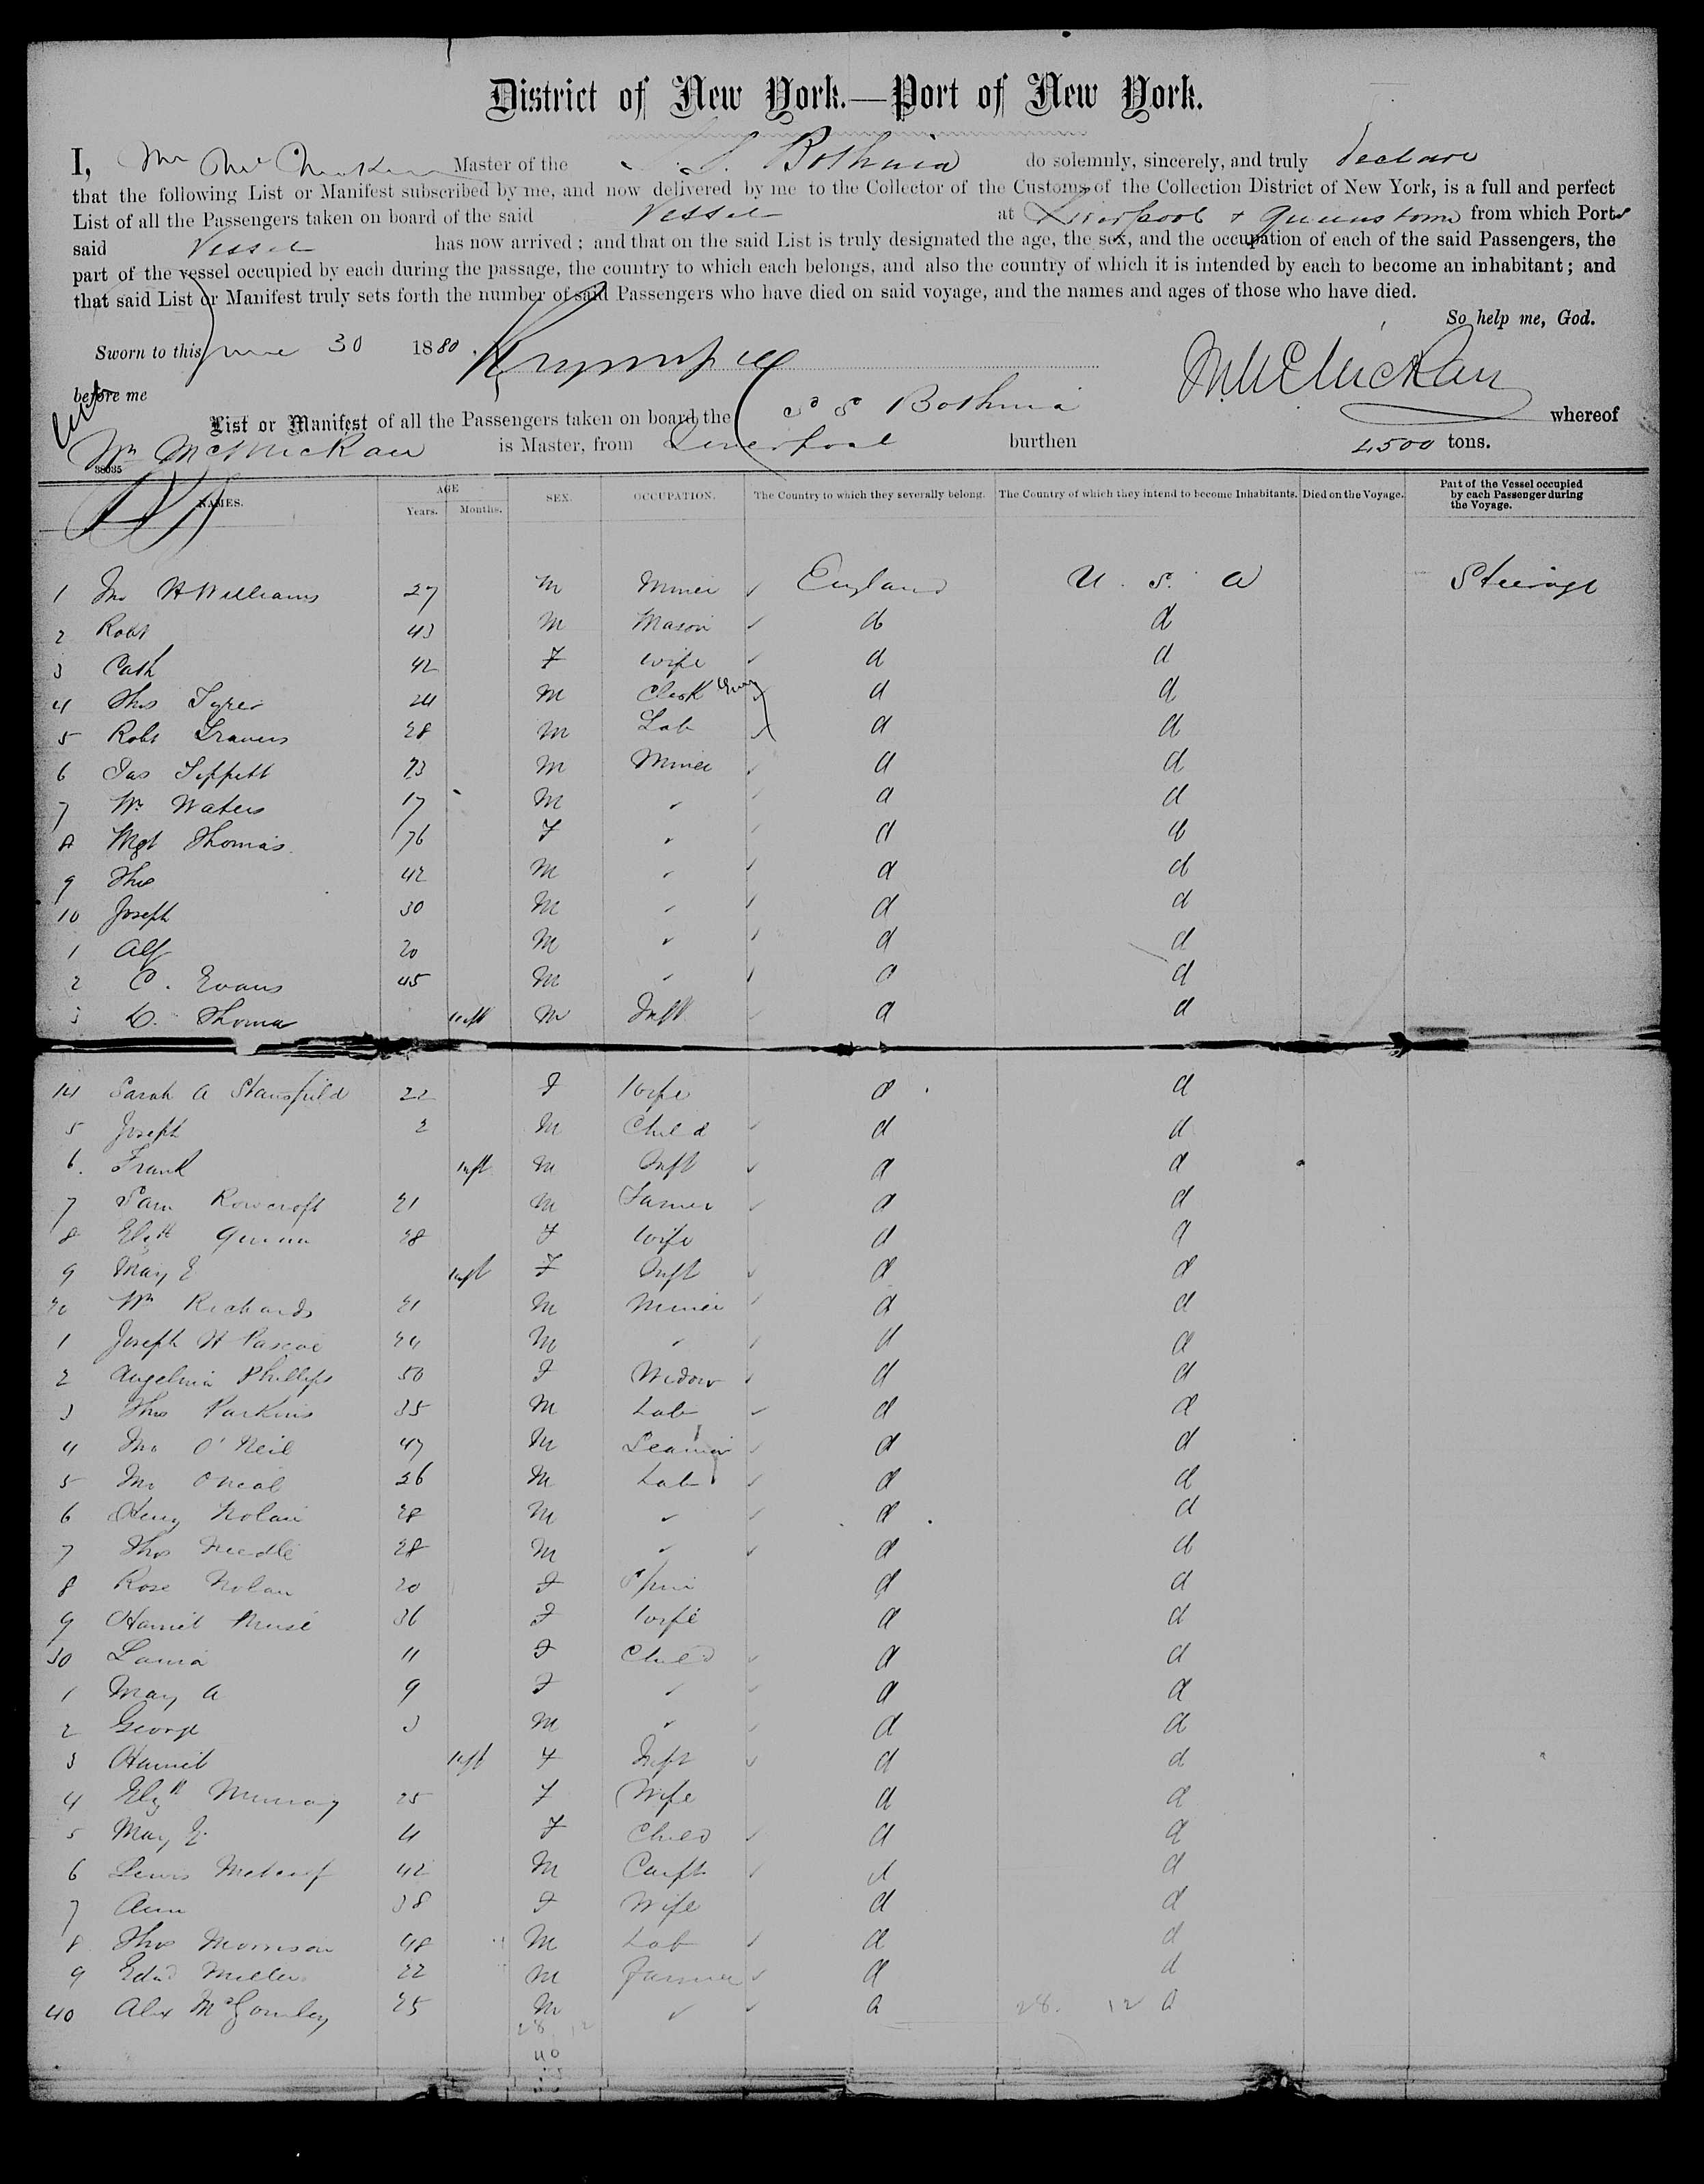 District of New York.—Port of New York.
I, Wm Master of the S. S. Bothnia do solemnly, sincerely, and truly declare
that the following List or Manifest subscribed by me, and now delivered by me to the Collector of the Customs of the Collection District of New York, is a full and perfect
List of all the Passengers taken on board of the said Vessel at Liverpool & Queenstown from which Ports
said Vessel has now arrived; and that on the said List is truly designated the age, the sex, and the occupation of each of the said Passengers, the
part of the vessel occupied by each during the passage, the country to which each belongs, and also the country of which it is intended by each to become an inhabitant; and
that said List or Manifest truly sets forth the number of said Passengers who have died on said voyage, and the names and ages of those who have died.
So help me, God.
Sworn to this June 30 1880
before me
List or Manifest of all the Passengers taken on board the S S Bothnia whereof
Wm McMickan is Master, from Liverpool burthen 4500 tons.
38035
NAMES. AGE Years. Months. SEX. OCCUPATION. The Country to which they severally belong. The Country of which they intend to become Inhabitants. Died on the Voyage. Part of the Vessel occupied by each Passenger during the Voyage.
1 Jno H Williams 27 M Miner England U. S. A Steerage
2 Robt 43 M Mason do d
3 Cath 42 F Wife d d
4 Thos Tyrer 24 M Clerk d d
5 Robt Travers 28 M Lab d d
6 Jas Tippett 23 M Miner d d
7 Wm Waters 17 M " d d
8 Mgt Thomas 76 F " d d
9 Thos 42 M " d d
10 Joseph 30 M " d d
1 Alf 20 M " d d
2 C. Evans 45 M " d d
3 D. Thoma inft M Inft d d
14 Sarah A Stansfield 22 F Wife d d
5 Joseph 2 M Child d d
6. Frank inft M Inft d d
7 Sam Rowcroft 21 M Farmer d d
8 Elizth 28 F Wife d d
9 Mary E inft F Inft d d
20 Wm Richards 21 M Miner d d
1 Joseph H Pascoe 24 M " d d
2 Angelina Phillips 50 F Widow d d
3 Thos Parkins 35 M Lab d d
4 Jno O'Neil 47 M Seaman d d
5 Jno Oneal 26 M Lab d d
6 Henry Nolan 28 M " d d
7 Thos Needle 28 M " d d
8 Rose Nolan 20 F Spin d d
9 Harriet 36 F Wife d d
30 Laura 11 F Child d d
1 Mary A 9 F " d d
2 George 3 M " d d
3 Harriet inft F Inft d d
4 Elizth Murray 25 F Wife d d
5 Mary E. 4 F Child d d
6 Lewis Metcalf 42 M Carpt d d
7 Ann 38 F Wife d d
8 Thos Morrison 48 M Lab d d
9 Edwd Miller 22 M Farmer d d
40 Alex McGomley 25 M " d 28. 12 d
28 12
40